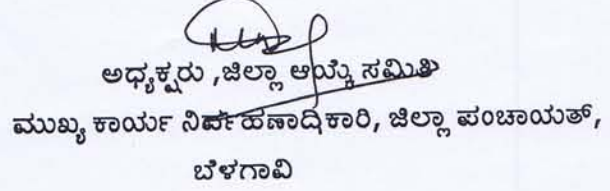 ಅಧ್ಯಕ್ಷರು ,ಜಿಲ್ಲಾ ಆಯ್ಕೆ ಸಮಿತಿ
ಮುಖ್ಯ ಕಾರ್ಯ ನಿರ್ವಹಣಾಧಿಕಾರಿ, ಜಿಲ್ಲಾ ಪಂಚಾಯತ್,
ಬೆಳಗಾವಿ